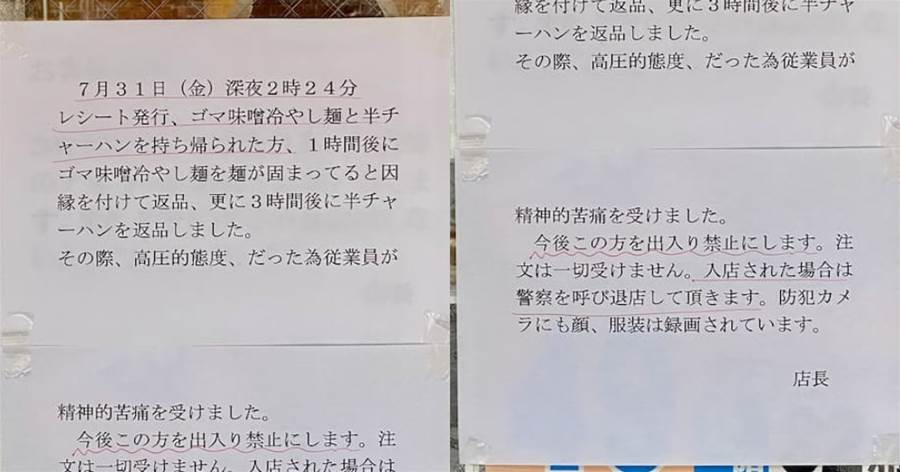 7月31日（金）深夜2時24分
レシート発行、ゴマ味噌冷やし麺と半チ
ャーハンを持ち帰られた方、1時間後に
ゴマ味噌冷やし麺を麺が固まってると因
縁を付けて返品、更に3時間後に半チャ
ーハンを返品しました。
その際、高圧的態度、だった為従業員が
精神的苦痛を受けました。
今後この方を出入り禁止にします。注
文は一切受けません。入店された場合は
縁を付けて返品、更に3時間後に半チャ
ーハンを返品しました。
その際、高圧的態度、だった為従業員が
精神的苦痛を受けました。
今後この方を出入り禁止にします。注
文は一切受けません。入店された場合は
警察を呼び退店して頂きます。防犯カメ
ラにも顔、服装は録画されています。
店長